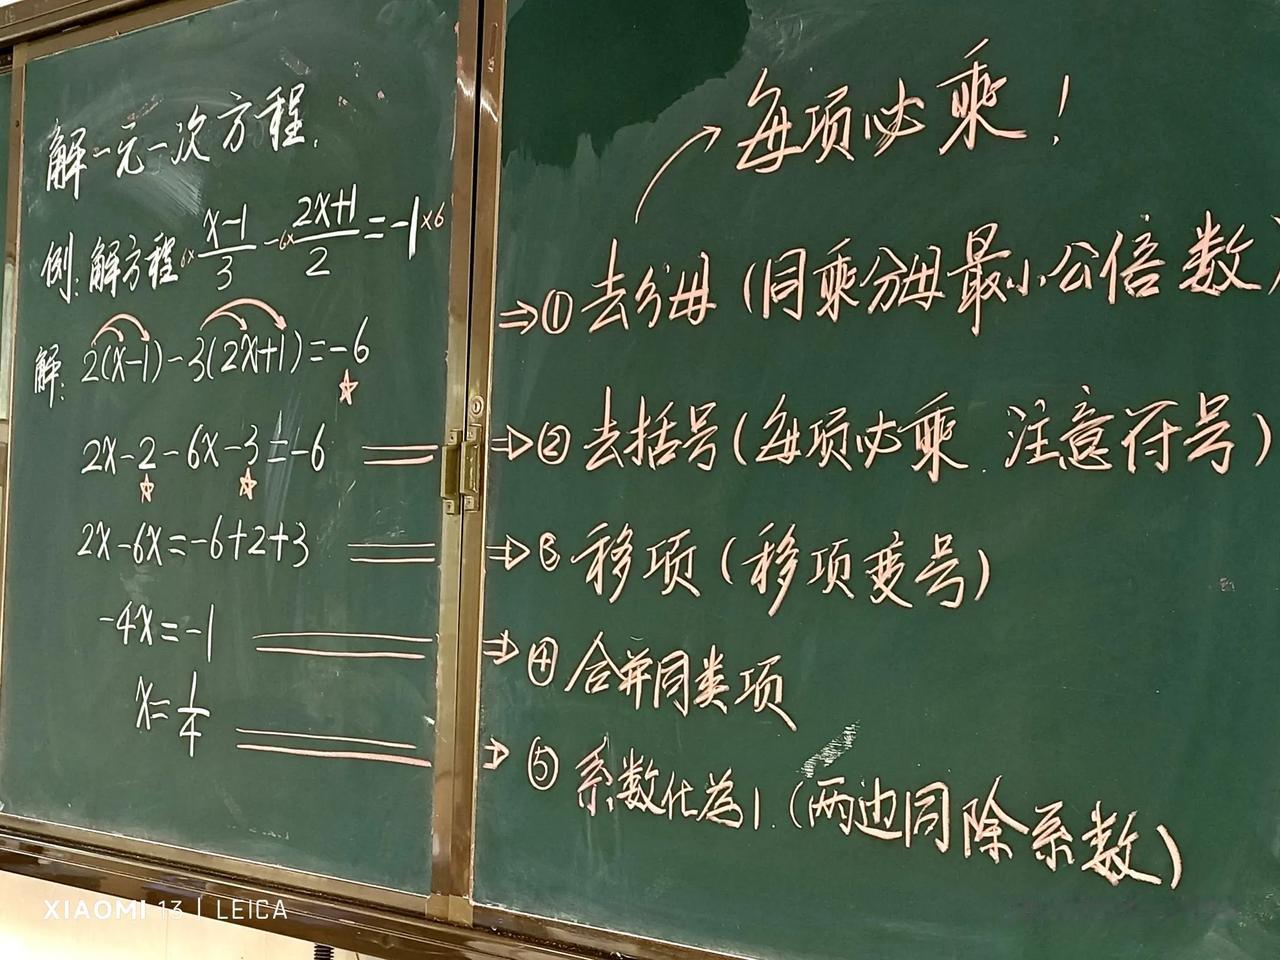 解一元一次方程.
例:解方程 6×(x-1)/3 -6×(2x+1)/2 = -1×6
解: 2(x-1)-3(2x+1)=-6
☆
2x-2-6x-3=-6
☆ ☆
2x-6x=-6+2+3
-4x=-1
x=1/4
每项必乘!
⇒① 去分母(同乘分母最小公倍数)
⇒② 去括号(每项必乘.注意符号)
⇒③ 移项(移项变号)
⇒④ 合并同类项
⇒⑤ 系数化为1.(两边同除系数)
XIAOMI 13 | LEICA